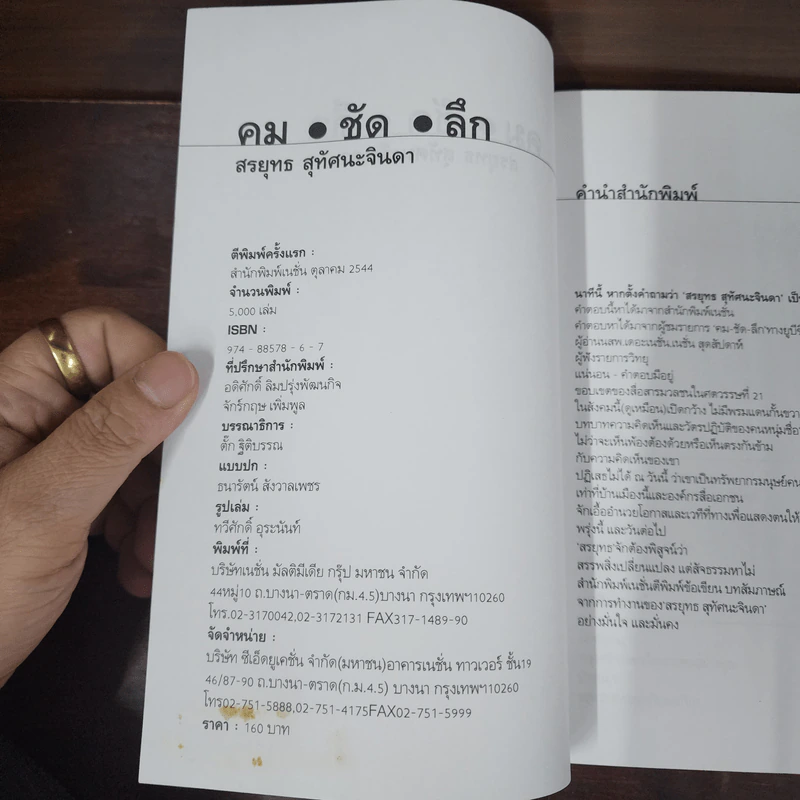 คม • ชัด • ลึก
สรยุทธ สุทัศนะจินดา
ตีพิมพ์ครั้งแรก :
สำนักพิมพ์เนชั่น ตุลาคม 2544
จำนวนพิมพ์ :
5,000 เล่ม
ISBN :
974 - 88578 - 6 - 7
ที่ปรึกษาสำนักพิมพ์ :
อดิศักดิ์ ลิมปรุ่งพัฒนกิจ
จักร์กฤษ เพิ่มพูล
บรรณาธิการ :
ตั๊ก ฐิติบรรณ
แบบปก :
ธนารัตน์ สังวาลเพชร
รูปเล่ม :
ทวีศักดิ์ อุระนันท์
พิมพ์ที่ :
บริษัทเนชั่น มัลติมีเดีย กรุ๊ป มหาชน จำกัด
44หมู่10 ถ.บางนา-ตราด(กม.4.5)บางนา กรุงเทพฯ10260
โทร.02-3170042,02-3172131 FAX317-1489-90
จัดจำหน่าย :
บริษัท ซีเอ็ดยูเคชั่น จำกัด(มหาชน)อาคารเนชั่น ทาวเวอร์ ชั้น19
46/87-90 ถ.บางนา-ตราด(ก.ม.4.5) บางนา กรุงเทพฯ10260
โทร02-751-5888,02-751-4175FAX02-751-5999
ราคา : 160 บาท
คำนำสำนักพิมพ์
นาทีนี้ หากตั้งคำถามว่า 'สรยุทธ สุทัศนะจินดา' เป็
คำตอบนี้หาได้มาจากสำนักพิมพ์เนชั่น
คำตอบหาได้มาจากผู้ชมรายการ 'คม-ชัด-ลึก'ทางยูบีซี
ผู้อ่านนสพ.เดอะเนชั่น,เนชั่น สุดสัปดาห์
ผู้ฟังรายการวิทยุ
แน่นอน - คำตอบมีอยู่
ขอบเขตของสื่อสารมวลชนในศตวรรษที่ 21
ในสังคมนี้(ดูเหมือน)เปิดกว้าง ไม่มีพรมแดนกั้นขวา
บทบาทความคิดเห็นและวัตรปฏิบัติของคนหนุ่มชื่อ
ไม่ว่าจะเห็นพ้องต้องด้วยหรือเห็นตรงกันข้าม
กับความคิดเห็นของเขา
ปฏิเสธไม่ได้ ณ วันนี้ ว่าเขาเป็นทรัพยากรมนุษย์คน
เท่าที่บ้านเมืองนี้และองค์กรสื่อเอกชน
จักเอื้ออำนวยโอกาสและเวทีที่ทางเพื่อแสดงตนให้
พรุ่งนี้ และวันต่อไป
'สรยุทธ'จักต้องพิสูจน์ว่า
สรรพสิ่งเปลี่ยนแปลง แต่สัจธรรมหาไม่
สำนักพิมพ์เนชั่นตีพิมพ์ข้อเขียน บทสัมภาษณ์
จากการทำงานของ'สรยุทธ สุทัศนะจินดา'
อย่างมั่นใจ และมั่นคง